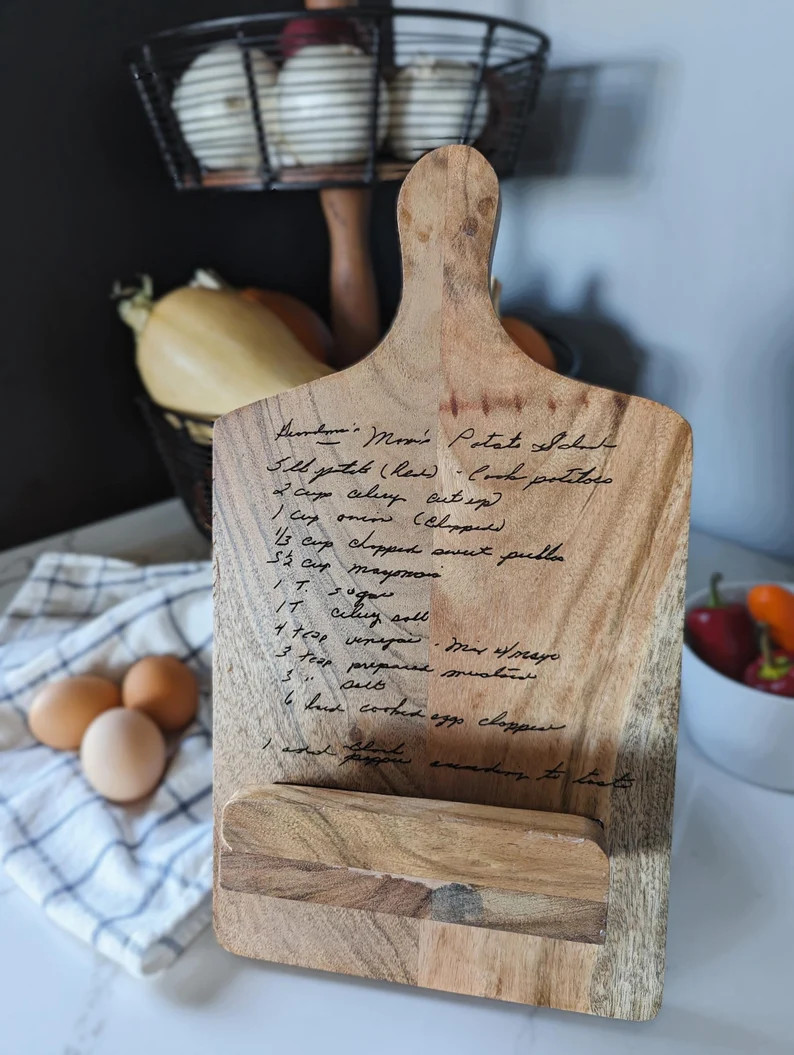 Grandma's Mom's Potato Salad
5 lb potato (Red) - Cook potatoes
2 cups celery cut up
1 cup onion (chopped)
1/3 cup chopped sweet pickles
3 1/2 cup mayonnais
1 T. sugar
1 T celery salt
4 tsp vinegar - Mix w/mayo
3 tsp prepared mustard
3 " salt
6 hard cooked eggs chopped
and black
pepper according to taste